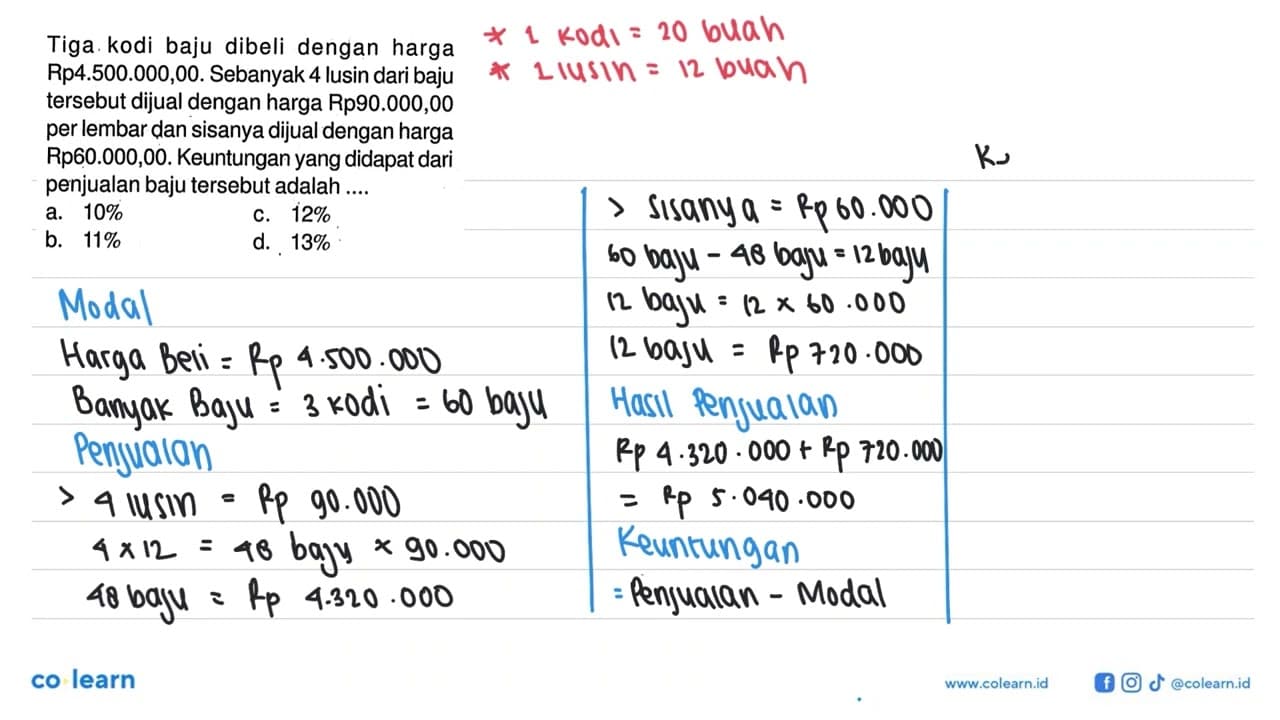 Tiga kodi baju dibeli dengan harga
Rp4.500.000,00. Sebanyak 4 lusin dari baju
tersebut dijual dengan harga Rp90.000,00
per lembar dan sisanya dijual dengan harga
Rp60.000,00. Keuntungan yang didapat dari
penjualan baju tersebut adalah ....
a. 10% c. 12%
b. 11% d. 13%
* 1 kodi = 20 buah
* 1 lusin = 12 buah
Modal
Harga Beli = Rp 4.500.000
Banyak Baju = 3 kodi = 60 baju
Penjualan
> 4 lusin = Rp 90.000
4 x 12 = 48 baju x 90.000
48 baju = Rp 4.320.000
> Sisanya = Rp 60.000
60 baju - 48 baju = 12 baju
12 baju = 12 x 60.000
12 baju = Rp 720.000
Hasil Penjualan
Rp 4.320.000 + Rp 720.000
= Rp 5.040.000
Keuntungan
= Penjualan - Modal
K
co learn
www.colearn.id
@colearn.id